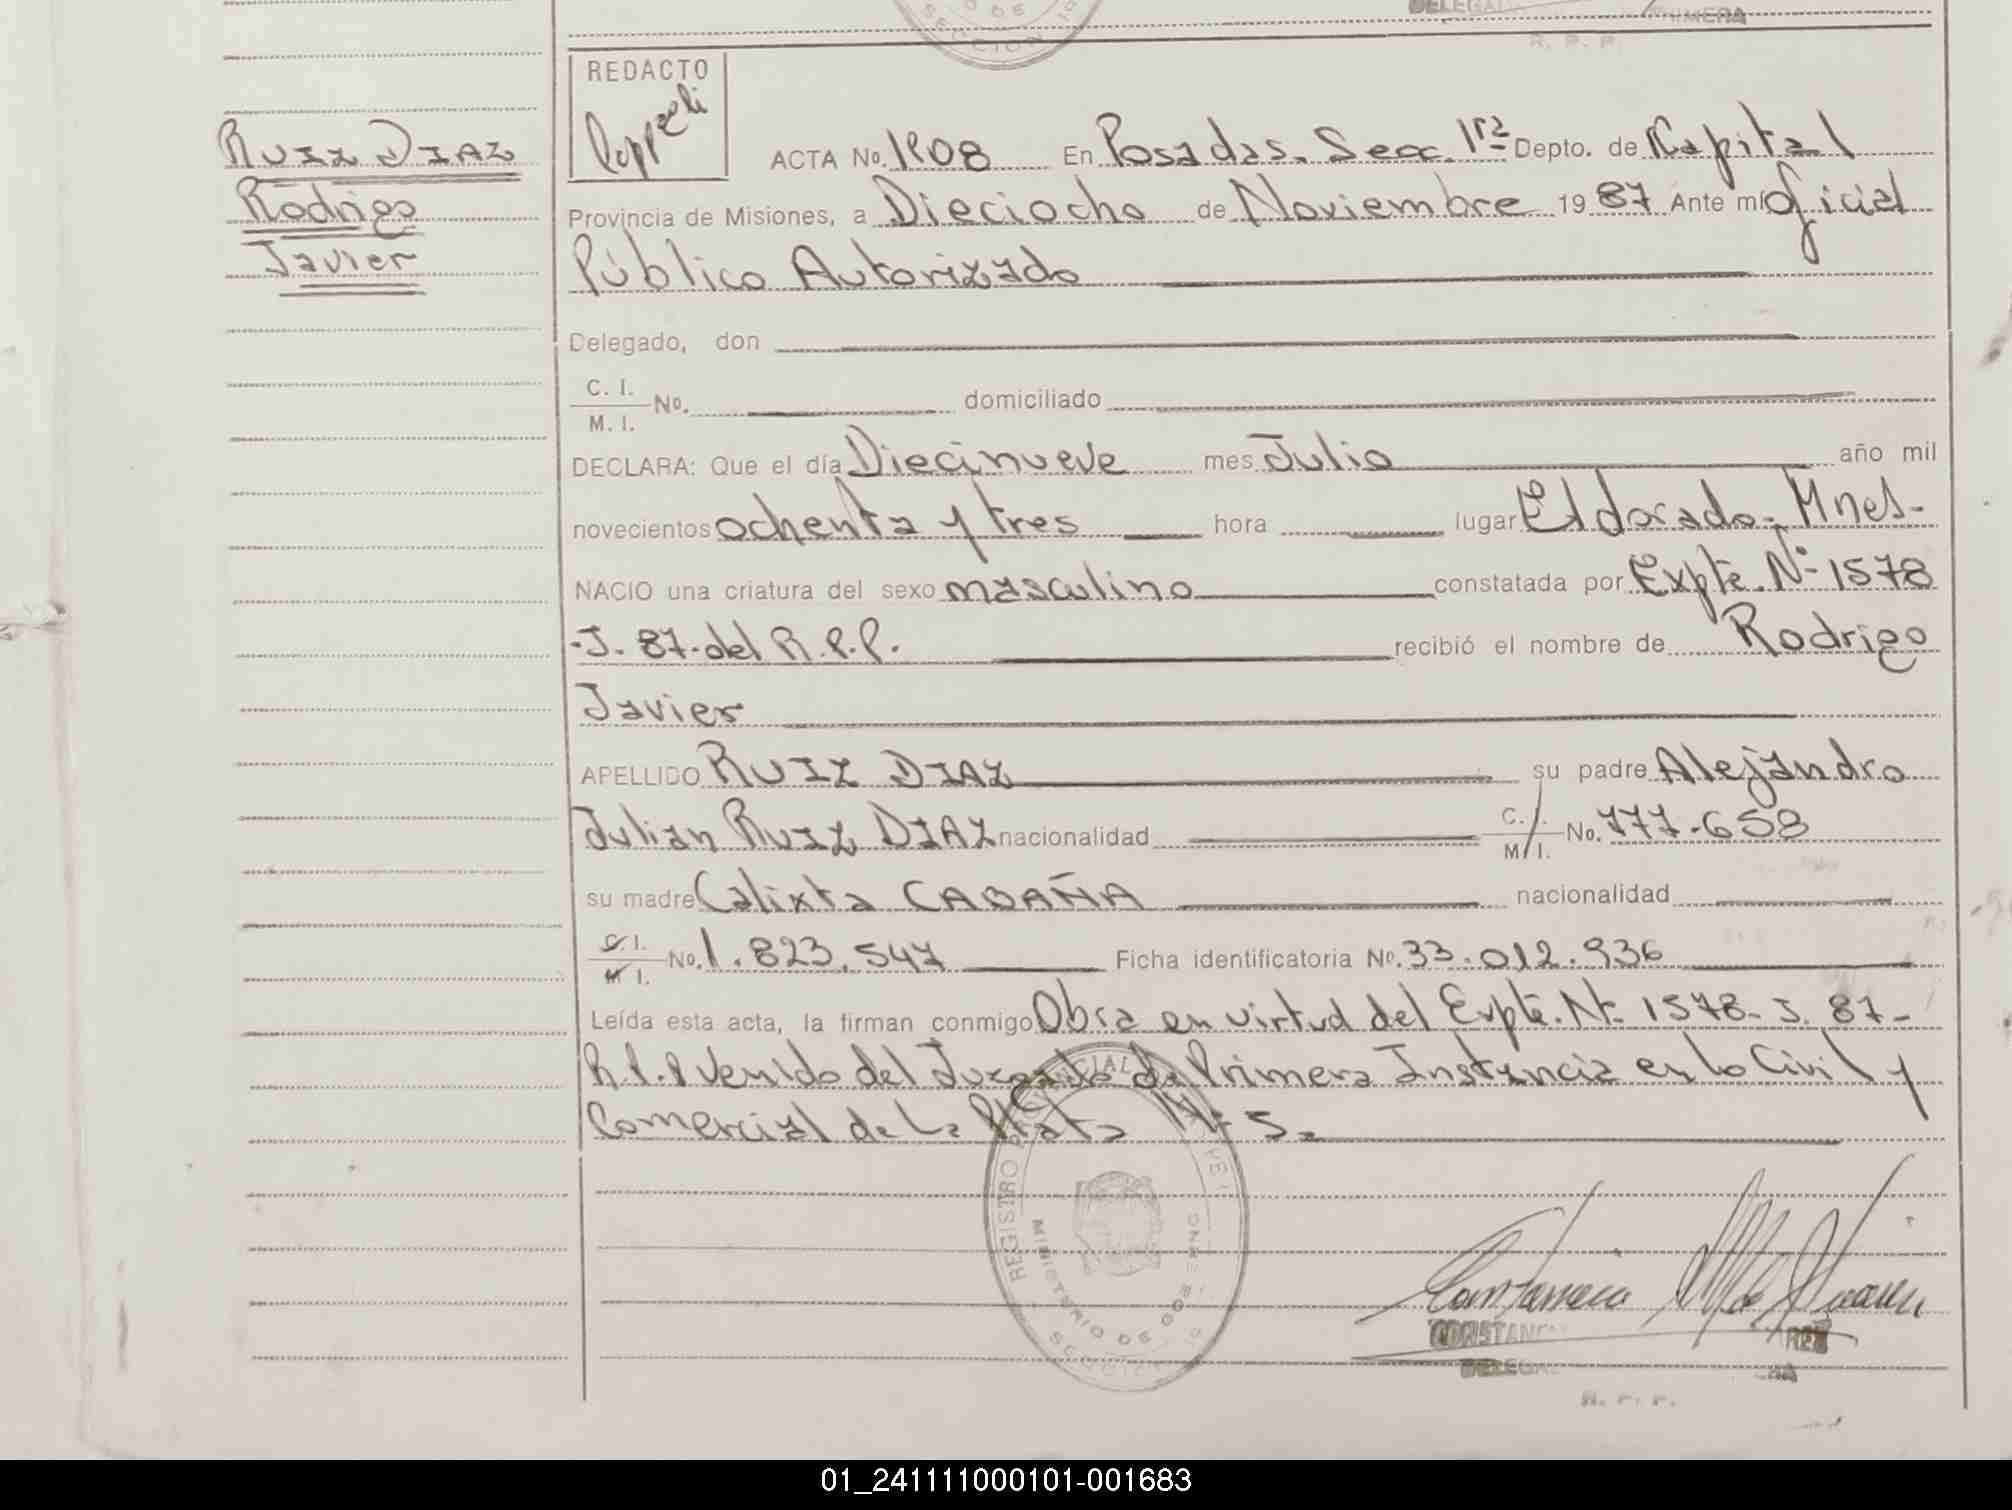 DELEGADA PRIMERA
R. P. P.
DE
SECCION
REDACTO
RUIZ DIAZ
Rodrigo
Javier
ACTA No. 1908 En Posadas. Secc. 1ra Depto. de Capital
Provincia de Misiones, a Dieciocho de Noviembre 1987 Ante mí Oficial
Público Autorizado
Delegado, don
C. I.
M. I. No. domiciliado
DECLARA: Que el día Diecinueve mes Julio año mil
novecientos ochenta y tres hora lugar Eldorado. Mnes-
NACIO una criatura del sexo masculino constatada por Expte. Nº 1578
-J. 87. del R.P.P. recibió el nombre de Rodrigo
Javier
APELLIDO RUIZ DIAZ su padre Alejandro
Julian RUIZ DIAZ nacionalidad C. I. M. I. No. 777.658
su madre Calixta CABAÑA nacionalidad
C. I.
M. I. No. 1.823.547 Ficha identificatoria No. 33.012.936
Leída esta acta, la firman conmigo Obra en virtud del Expte. Nº 1578-J. 87-
R.P.P venido del Juzgado de Primera Instancia en lo Civil y
Comercial de La Plata Nº 5.
REGISTRO PROVINCIAL DE
MINISTERIO DE GOBIERNO
R. P. P.
01_241111000101-001683